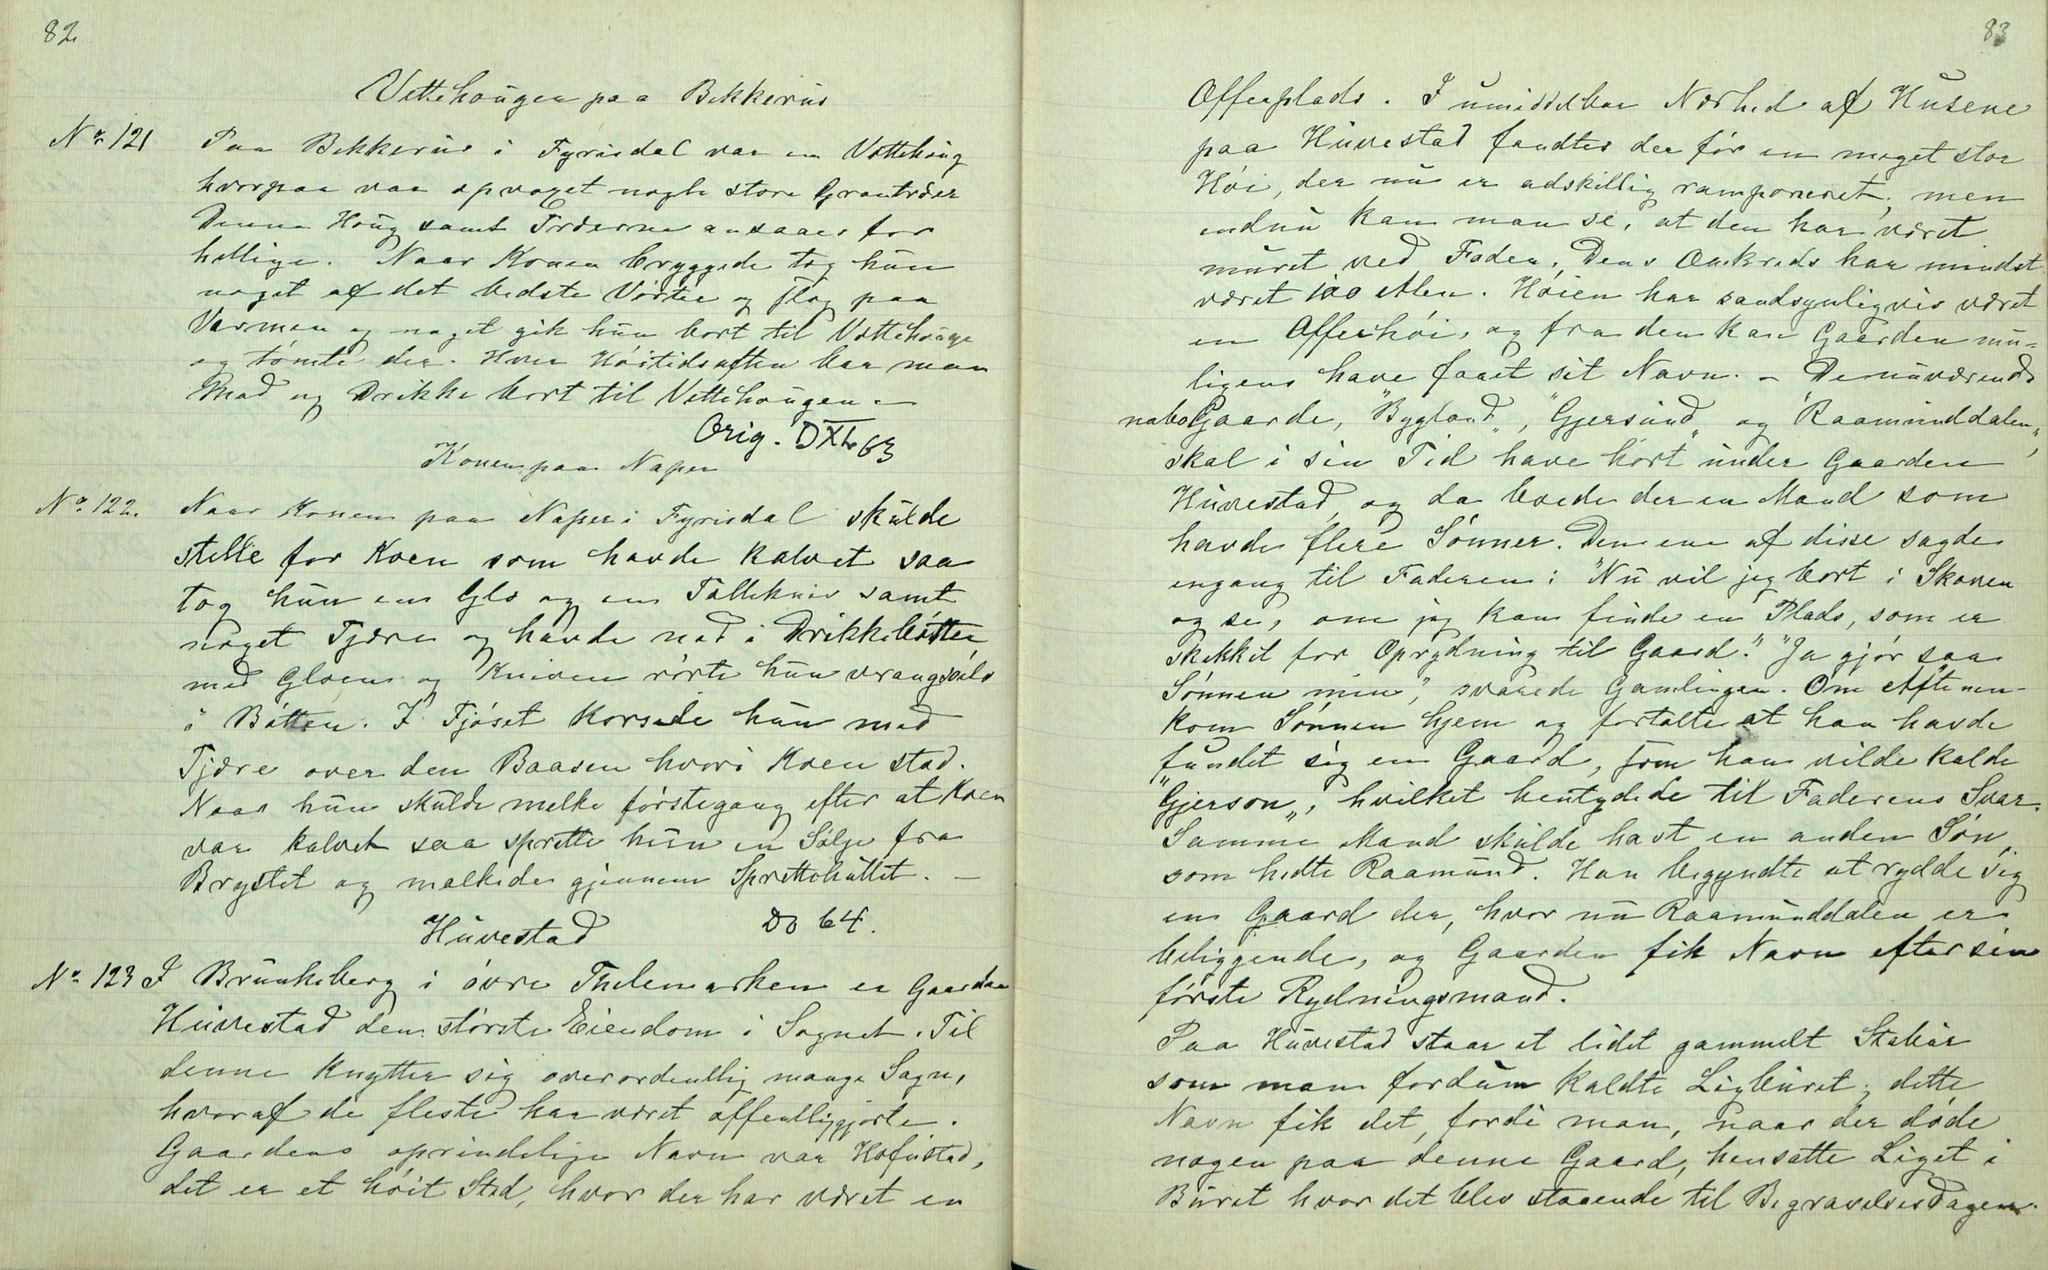 82
Vettehougen paa Bekkerus
No 121 Paa Bekkerus i Fyrisdal var en Vettehoug
hvorpaa var opvoxet nogle store Grantræer
Denne Houg samt Træerne ansaaes for
hellige. Naar Konen bryggede tog hun
noget af det bedste Vørter og slog paa
Varmen og noget gik hun bort til Vettehougen
og tømte der. Hver Høitidsaften bar man
Mad og Drikke bort til Vettehougen –
Orig. D XL 63
Konen paa Naper
No 122. Naar Konen paa Naper i Fyrisdal skulde
stelle for Koen som havde kalvet saa
tog hun en Glo og en Tollekniv samt
noget Tjære og havde ned i Drikkebøtten
med Gloen og Kniven rørte hun vrangsøls
i Bøtten. I Fjøset korsede hun med
Tjære over den Baasen hvori Koen stod.
Naar hun skulde melke førstegang efter at Koen
var kalvet saa sprette hun en Sølje fra
Brystet og malkede gjennem Sprettehullet. –
Huvestad Do 64.
No 123 I Brunkeberg i øvre Thelemarken er Gaarden
Huvestad den største Eiendom i Sognet. Til
denne knytter sig overordentlig mange Sagn,
hvoraf de fleste har været offentliggjorte.
Gaardens oprindelige Navn var Hofustad,
det er et høit Sted, hvor der har været en
83
Offerplads. I umiddelbar Nærhed af Husene
paa Huvestad fandtes der før en meget stor
Høi, der nu er adskillig ramponeret, men
endnu kan man se, at den har været
muret ved Foden. Dens Omkreds har mindst
været 100 Alen. Høien har sandsynligvis været
en Offerhøi, og fra den kan Gaarden mu=
ligens have faaet sit Navn. – De nuværende
naboGaarde, "Bygland", "Gjersund" og "Raamunddalen",
skal i sin Tid have hørt under Gaarden
Huvestad, og da boede der en Mand som
havde flere Sønner. Den ene af disse sagde
engang til Faderen: "Nu vil jeg bort i Skoven
og se, om jeg kan finde en Plads, som er
skikket for Oprydning til Gaard." "Ja gjør saa
Sønnen min", svarede Gamlingen. Om Aftenen
kom Sønnen hjem og fortalte at han havde
fundet sig en Gaard, som han vilde kalde
"Gjerson", hvilket hentydede til Faderens Svar.
Samme Mand skulde havt en anden Søn,
som hedte Raamund. Han begyndte at rydde sig
en Gaard der, hvor nu Raamunddalen er
beliggende, og Gaarden fik Navn efter sin
første Rydningsmand.
Paa Huvestad staar et lidet gammelt Stabur
som man fordum kaldte Ligburet; dette
Navn fik det, fordi man, naar der døde
nogen paa denne Gaard, hensatte Liget i
Buret hvor det blev staaende til Begravelsesdagen.